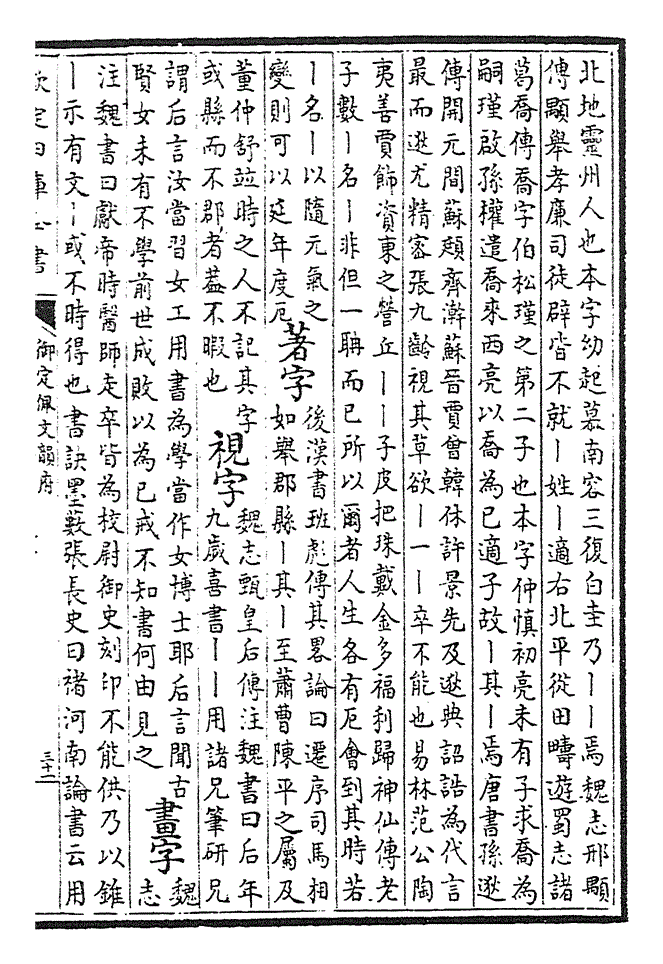 北地靈州人也本字幼起慕南容三復白圭乃丨丨焉魏志邢顒
傳顒舉孝廉司徒辟皆不就丨姓丨適右北平從田疇遊蜀志諸
葛喬傳喬字伯松瑾之第二子也本字仲慎初亮未有子求喬為
嗣瑾啟孫權遣喬來西亮以喬為已適子故丨其丨焉唐書孫逖
傳開元間蘇頲齊澣蘇晉賈曾韓休許景先及逖典詔誥為代言
最而逖尤精密張九齡視其草欲丨一丨卒不能也易林范公陶
夷善賈飾資東之營丘丨丨子皮把珠戴金多福利歸神仙傳老
子數丨名丨非但一聃而已所以爾者人生各有厄會到其時若
丨名丨以隨元氣之
變則可以延年度厄
著字
後漢書班彪傳其畧論曰遷序司馬相
如舉郡縣丨其丨至蕭曹陳平之屬及
董仲舒竝時之人不記其字
或縣而不郡者葢不暇也
視字
魏志甄皇后傳注魏書曰后年
九歲喜書丨丨用諸兄筆研兄
謂后言汝當習女工用書為學當作女博士耶后言聞古
賢女未有不學前世成敗以為已戒不知書何由見之
畫字
魏
志
注魏書曰獻帝時醫師走卒皆為校尉御史刻印不能供乃以錐
丨示有文丨或不時得也書訣墨藪張長史曰褚河南論書云用
欽定四庫全書
御定佩文韻府
三十二